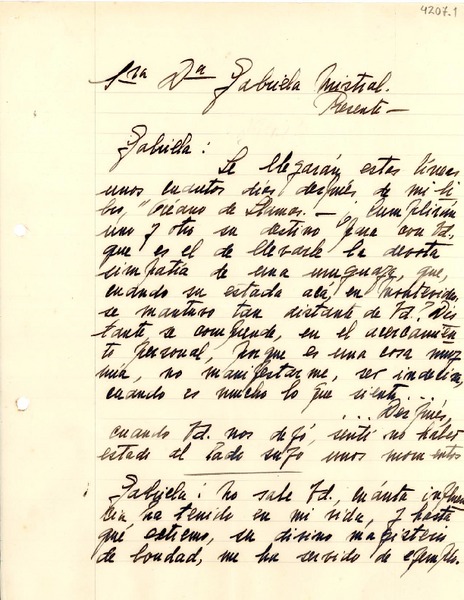 4207.1
Sra Da Gabriela Mistral.
Presente—
Gabriela:
Le llegarán estas líneas
unos cuantos días después de mi li-
bro, "Océano de Llamas.— ¡Cumplirán
uno y otro su destino para con Ud.
que es el de llevarle la devota
simpatía de una uruguaya, que,
cuando su estada acá, en Montevideo,
se mantuvo tan distante de Ud. Dis-
tante se comprende, en el acercamien-
to personal, porque es una cosa muy
mía, no manifestarme, ser indecisa,
cuando es mucho lo que siento....
... Después,
cuando Ud. nos dejó, sentí no haber
estado al lado suyo unos momentos
Gabriela: no sabe Ud., cuánta influen-
cia ha tenido en mi vida, y hasta
qué extremo, su divino magisterio
de bondad, me ha servido de ejemplo.